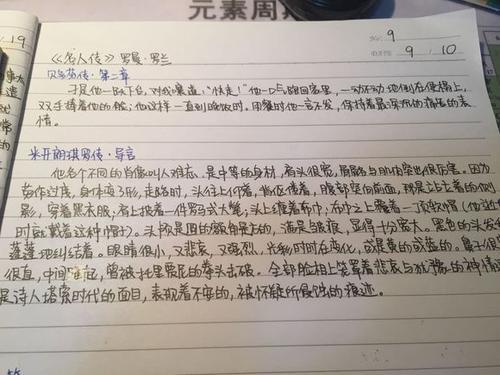 元素周期
19
9
9 10
《名人传》罗曼·罗兰
贝多芬传·第二章
于是他一跃下台，对我嚷道："快走！"他一口气跑回家里，一动不动地倒在便榻上，
双手捧着他的脸；他这样一直到晚饭时。用餐时他一言不发，保持着最深沉的痛苦的表
情。
米开朗琪罗传·导言
他各个不同的肖像叫人难忘。是中等的身材，肩头很宽，肩骼与肌肉突出很厉害。因为
劳作过度，身体变了形，走路时，头往上仰着，背伛偻着，腹部突向前面，
影，穿着黑衣服；肩上披着一件罗马式大氅；头上缠着布巾；布巾之上覆着一顶软帽
时就戴着这种帽子）。头颅是圆的，额角是方的，满是皱痕，显得十分宽大。黑色的头发
蓬地纠结着。眼睛很小，又悲哀，又强烈，光彩时时在变化，或是黄的或蓝的。鼻子很
很直，中间隆起，曾被托里贾尼的拳头击破。全部脸相上笼罩着悲哀与犹豫的神情
是诗人塔索时代的面目，表现着不安的，被怀疑所侵蚀的痕迹。